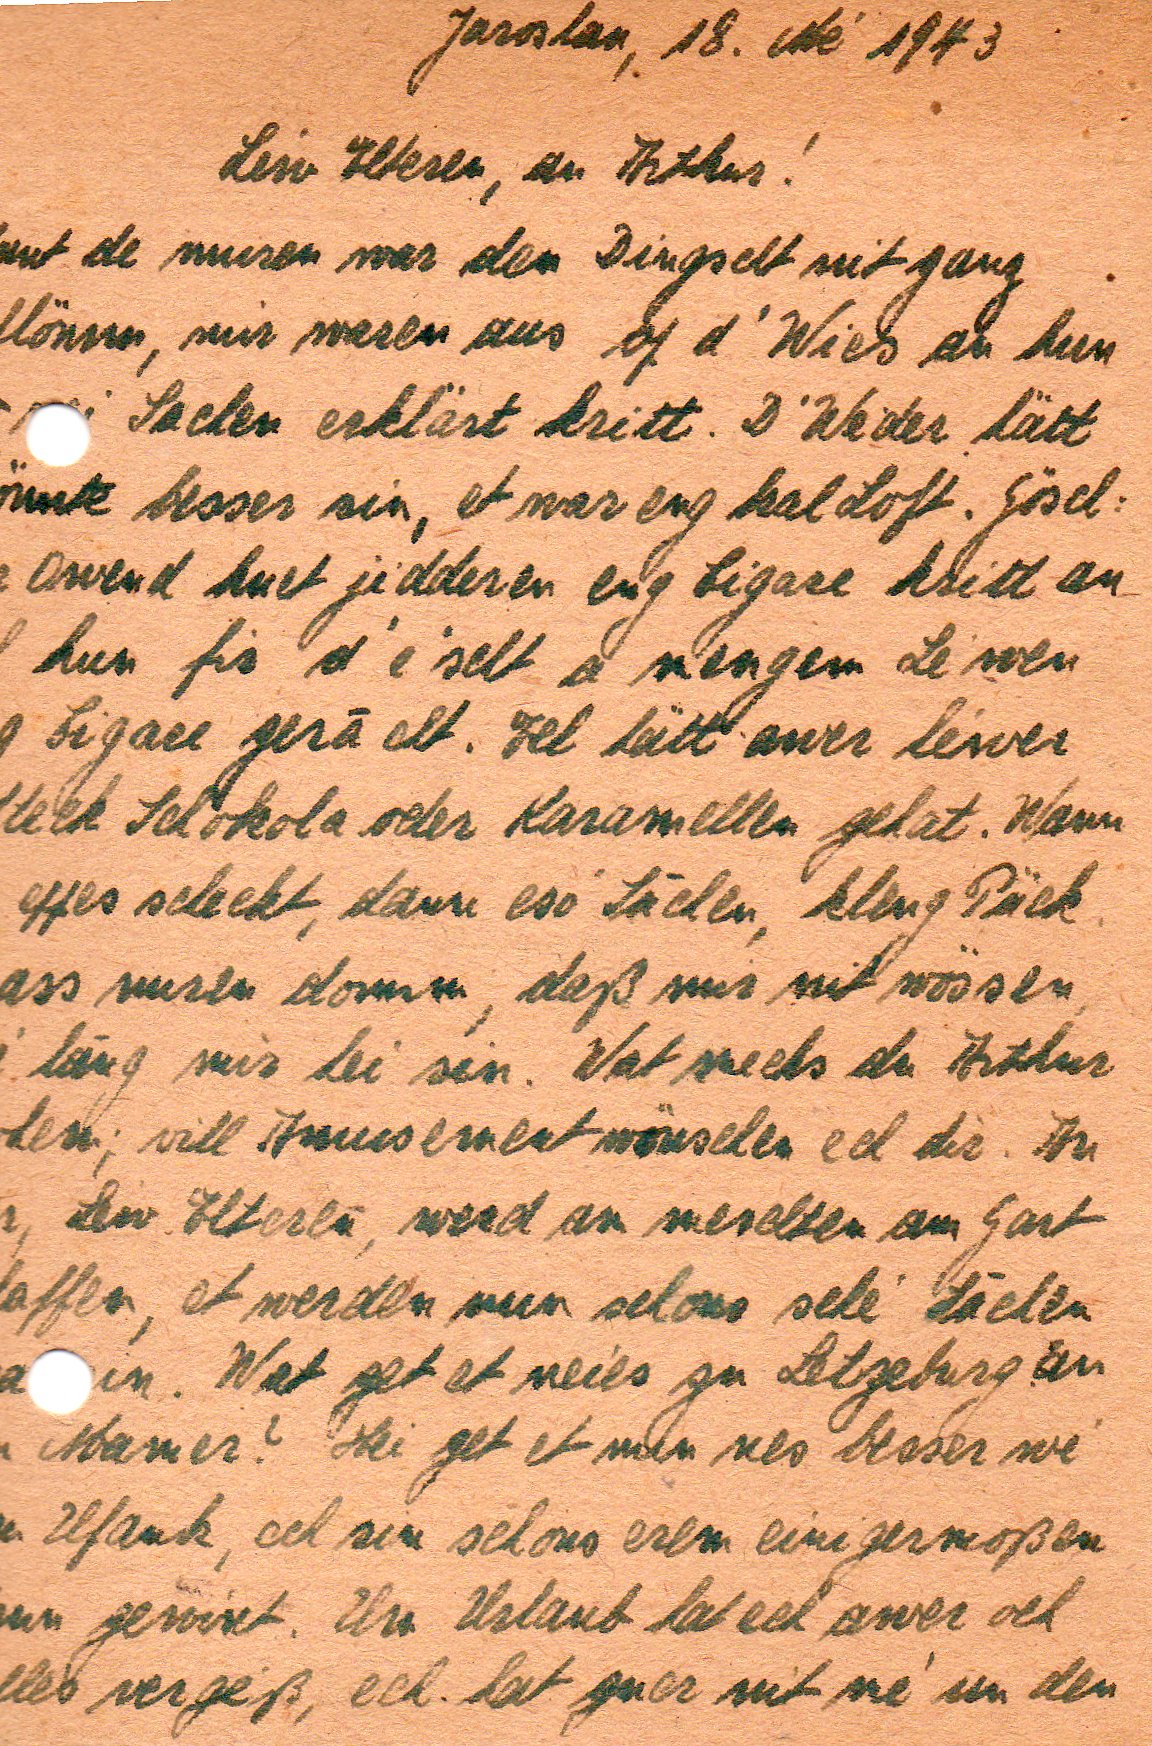 Jaroslau, 18. Mé 1943
Léiw Elteren, an Arthur!
de muren war den Dingscht nit ganz
schlömm, mir waren aus op d'Wies an hun
Sachen erklärt kritt. D'Wieder hätt
könnte besser sin, et war eng kal Loft. Gösch:
Owend huet jidderen eng Zigare kritt an
hun fir d'éischt a mengem Léiwen
Zigare geräächt. Ech hätt awer léiwer
Schokola oder Karamellen gehat. Wann
eppes scheckt, dann esó Sächen, kleng Päck.
ass nuren domm, daß mir nit wössen,
läng mir hei sin. Wat mechs du Arthur
vill Amusement wönschen ech dir. An
Léiw Elteren, werd am meschten am Gart
schaffen, et werden nun schons sche' Sächen
in. Wat get et neies zu Letzeburg an
Mamer? Hei get et nun nes besser wé
Ufank, ech sin schons erem einigermoßen
gewinnt. Um Urlaub hat ech awer och
alles vergeiß, ech hat guer nit mé un den